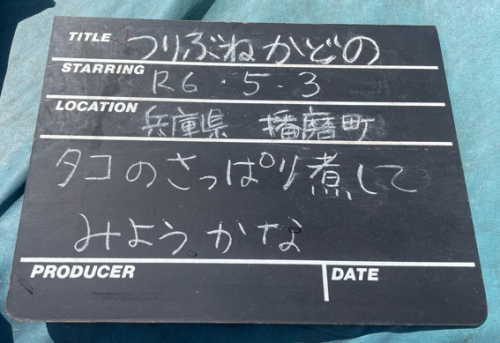 TITLE つりぶねかどの
STARRING R6・5・3
LOCATION 兵庫県 播磨町
タコのさっぱり煮して
みようかな
PRODUCER DATE